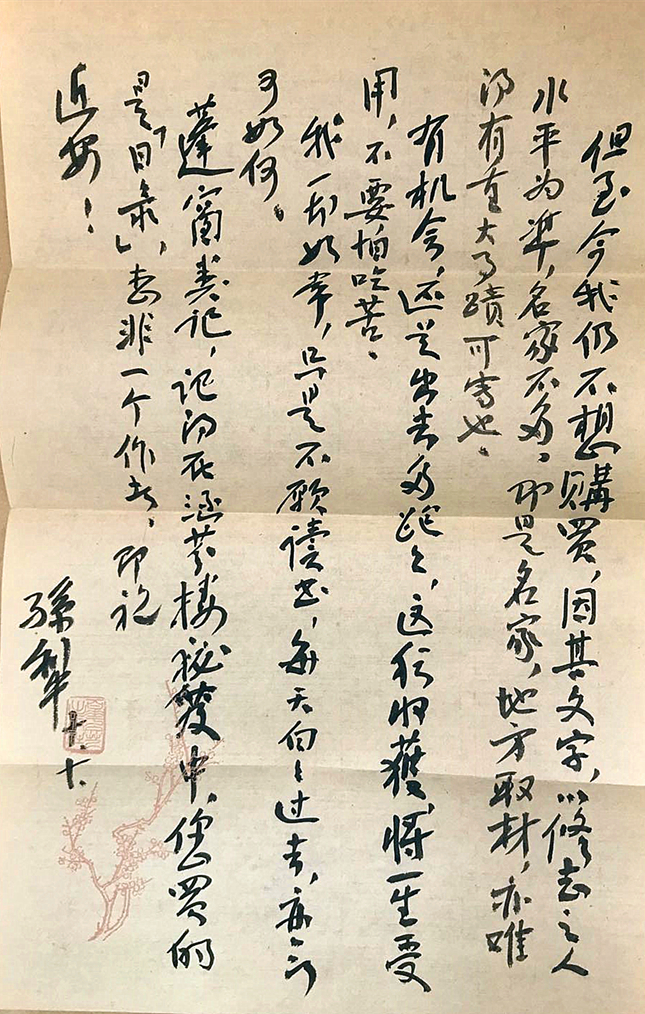 但至今我仍不想購買，因其文字，以修志之人
水平为準，名家不多，即是名家，地方取材，亦难
得有重大事蹟可寄也。
有机会，还是出去多跑跑，这份收獲，将一生受
用，不要怕吃苦。
我一切如常，只是不愿读书，每天白白过去，无
可如何。
蓬窗类记，记得在涵芬楼秘笈中，您买的
是「日录」，当非一个作者，即祝
近安！
孫犁
十.十.